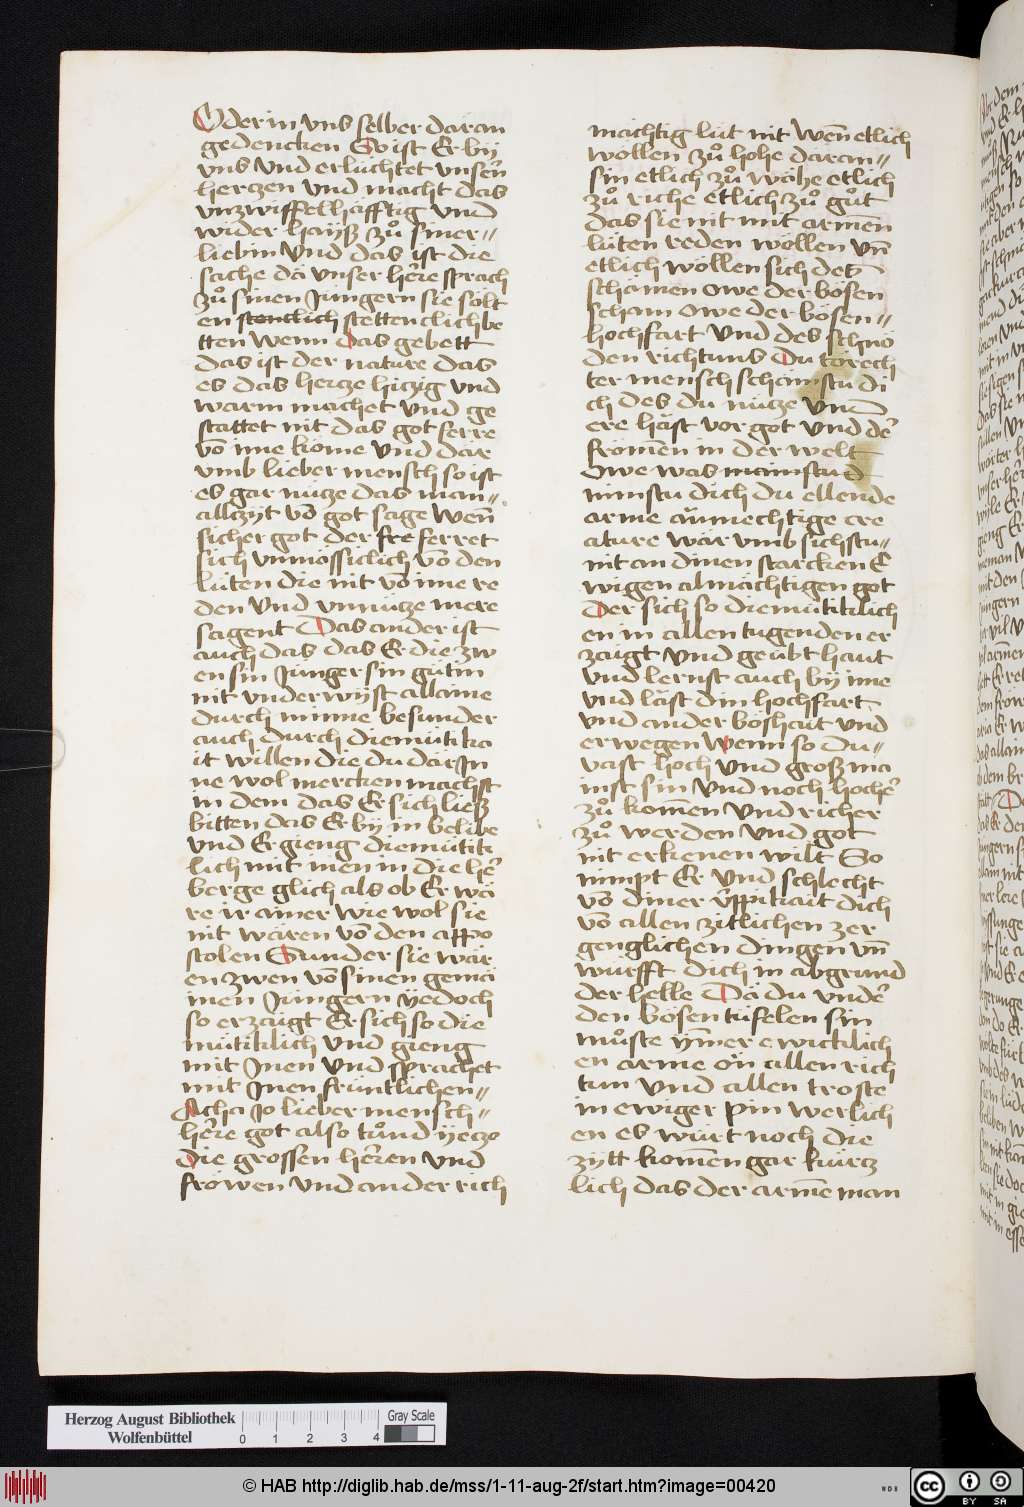 Oder in vns selber daran
gedencken So ist Er by
vns vnd erlúchtet vnsern̄
hertzen vnd macht das
vnzwiffelhäfftig vnd
wider hayß zů siner//
liebin vnd das ist die
sache dä vnser her̄e sprach
zů sinen Jüngern sie sölt
en stenclich stettenclich be
tten wenn das gebett
das ist der nature das
es das hertze hitzig vnd
warm machet vnd ge
stattet nit das got ferre
vō ime kome vnd dar
vmb lieber mensch so ist
es gar nútze das man//
allczyt vō got sage wen̄
sicher got der fre ferret
sich vnmössiclich vō den
lúten die nit vō ime re
den vnd vnnútze mere
sagent Das ander ist
auch das das Er die zw
en sin Jünger sin gútin
nit vnderwyst allaine
durch minne besunder
auch durch diemútika
it willen die du där In
ne wol mercken machst
in dem das Er sich ließ
bitten das Er by in belibe
vnd Er gieng diemútik
lich mit inen in die her̄
berge glich als ob Er wä
re ir ainer wie wol sie
nit wären vō den appo
stolen Sunder sie wär
en zwen vō sinen gemä
inen Jüngern yedoch
so erzaigt Er sich so die
mútiklich vnd gieng
mit Inen vnd sprachet
mit Inen früntlichen//
Acha Jo lieber mensch//
her̄e got also tůnd yeczo
die grossen her̄en vnd
fröwen vnd ander rich
mächtig lút nit wen̄ etlich
wöllen zů hohe daran//
sin etlich zů wähe etlich
zů riche etlich zů gůt
das sie nit mit armen̄
lúten reden wöllen vn̄
etlich wöllen sich des
schamen owe der bösen
scham owe der bösen//
hochfart vnd des schnö
den richtums Du törech
ter mensch schamstu di
ch des du nútze vnd
ere häst vor got vnd der̄
fromen̄ in der welt
Owe was mainstu d
nimstu dich du ellende
arme aumechtige cre
ature war vmb sichstu//
nit an dinen starcken E
wigen almächtigen got
Der sich so diemútiklich
en in allen tugenden er
zaigt vnd geübt haut
vnd lernst auch by ime
vnd läst din hochfart
vnd ander boshait vnd
erwegen Wenn so du//
vast hoch vnd groß ma
inst sin vnd noch höcher̄
zů komen̄ vnd richer
zů werden vnd got
nit erkenen wilt So
nimpt Er vnd schlecht
vō diner v̈ppikait dich
vō allen zitlichen zer
genglichen dingen vn̄
würfft dich in abgrund
der helle Dä du vnder̄
den bösen túfelen sin
můste ym̄er ewicklich
en arme ön allen rich
tum vnd allen troste
in ewiger pin werlich
en es würt noch die
zytt komen̄ gar kurcz
lich das der arme man
Herzog August Bibliothek
Wolfenbüttel
0 1 2 3 4
Gray Scale
© HAB http://diglib.hab.de/mss/1-11-aug-2f/start.htm?image=00420
WDB
cc BY SA